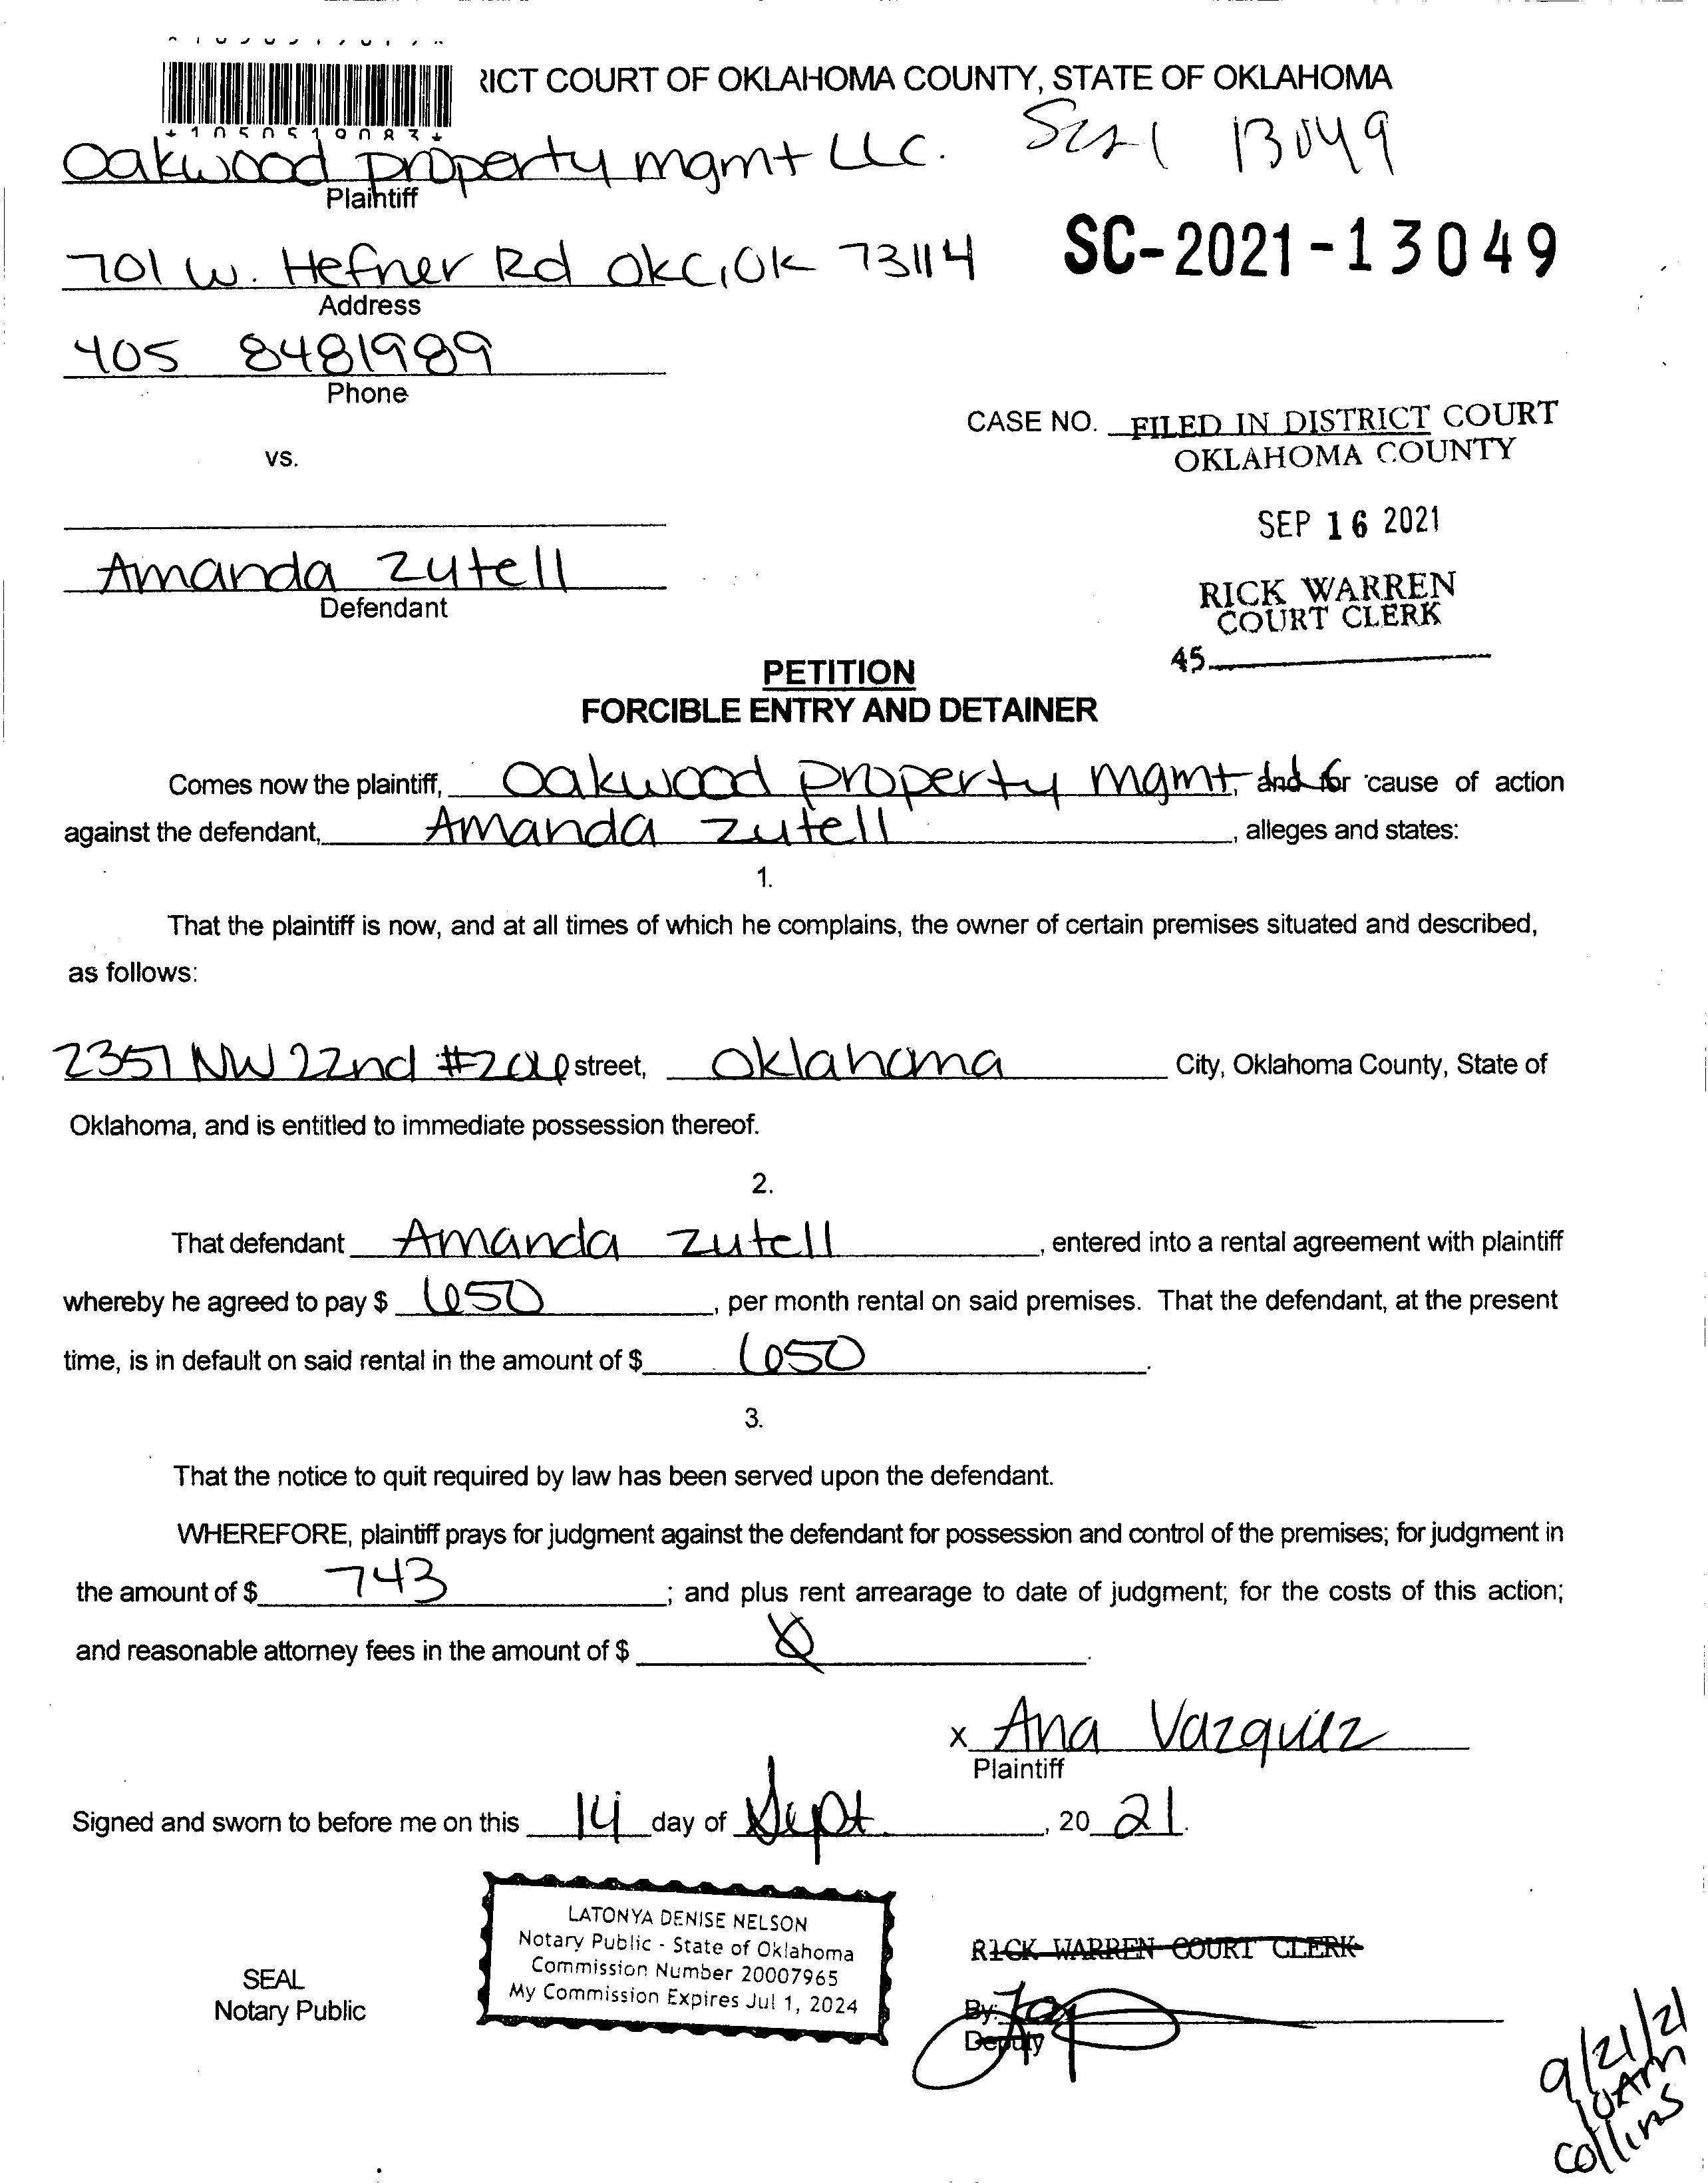 RICT COURT OF OKLAHOMA COUNTY, STATE OF OKLAHOMA
*1050519083*
Oakwood property mgmt LLC.
13049
Plaintiff
SC-2021-13049
701 W. Hefner Rd OKC, OK 73114
Address
405 8481989
Phone
CASE NO. FILED IN DISTRICT COURT
OKLAHOMA COUNTY
vs.
SEP 16 2021
Amanda Zutell
Defendant
RICK WARREN
COURT CLERK
45
PETITION
FORCIBLE ENTRY AND DETAINER
Comes now the plaintiff, Oakwood property mgmt, and for cause of action
against the defendant, Amanda Zutell, alleges and states:
1.
That the plaintiff is now, and at all times of which he complains, the owner of certain premises situated and described,
as follows:
2357 NW 22nd #206 street, Oklahoma City, Oklahoma County, State of
Oklahoma, and is entitled to immediate possession thereof.
2.
That defendant Amanda Zutell, entered into a rental agreement with plaintiff
whereby he agreed to pay $ 650, per month rental on said premises. That the defendant, at the present
time, is in default on said rental in the amount of $ 650.
3.
That the notice to quit required by law has been served upon the defendant.
WHEREFORE, plaintiff prays for judgment against the defendant for possession and control of the premises; for judgment in
the amount of $ 743; and plus rent arrearage to date of judgment; for the costs of this action;
and reasonable attorney fees in the amount of $ 0.
x Ana Vazquez
Plaintiff
Signed and sworn to before me on this 14 day of Sept, 2021.
LATONYA DENISE NELSON
Notary Public - State of Oklahoma
Commission Number 20007965
My Commission Expires Jul 1, 2024
SEAL
Notary Public
RICK WARREN COURT CLERK
By:
Deputy
9/21/21
10AM
Collins